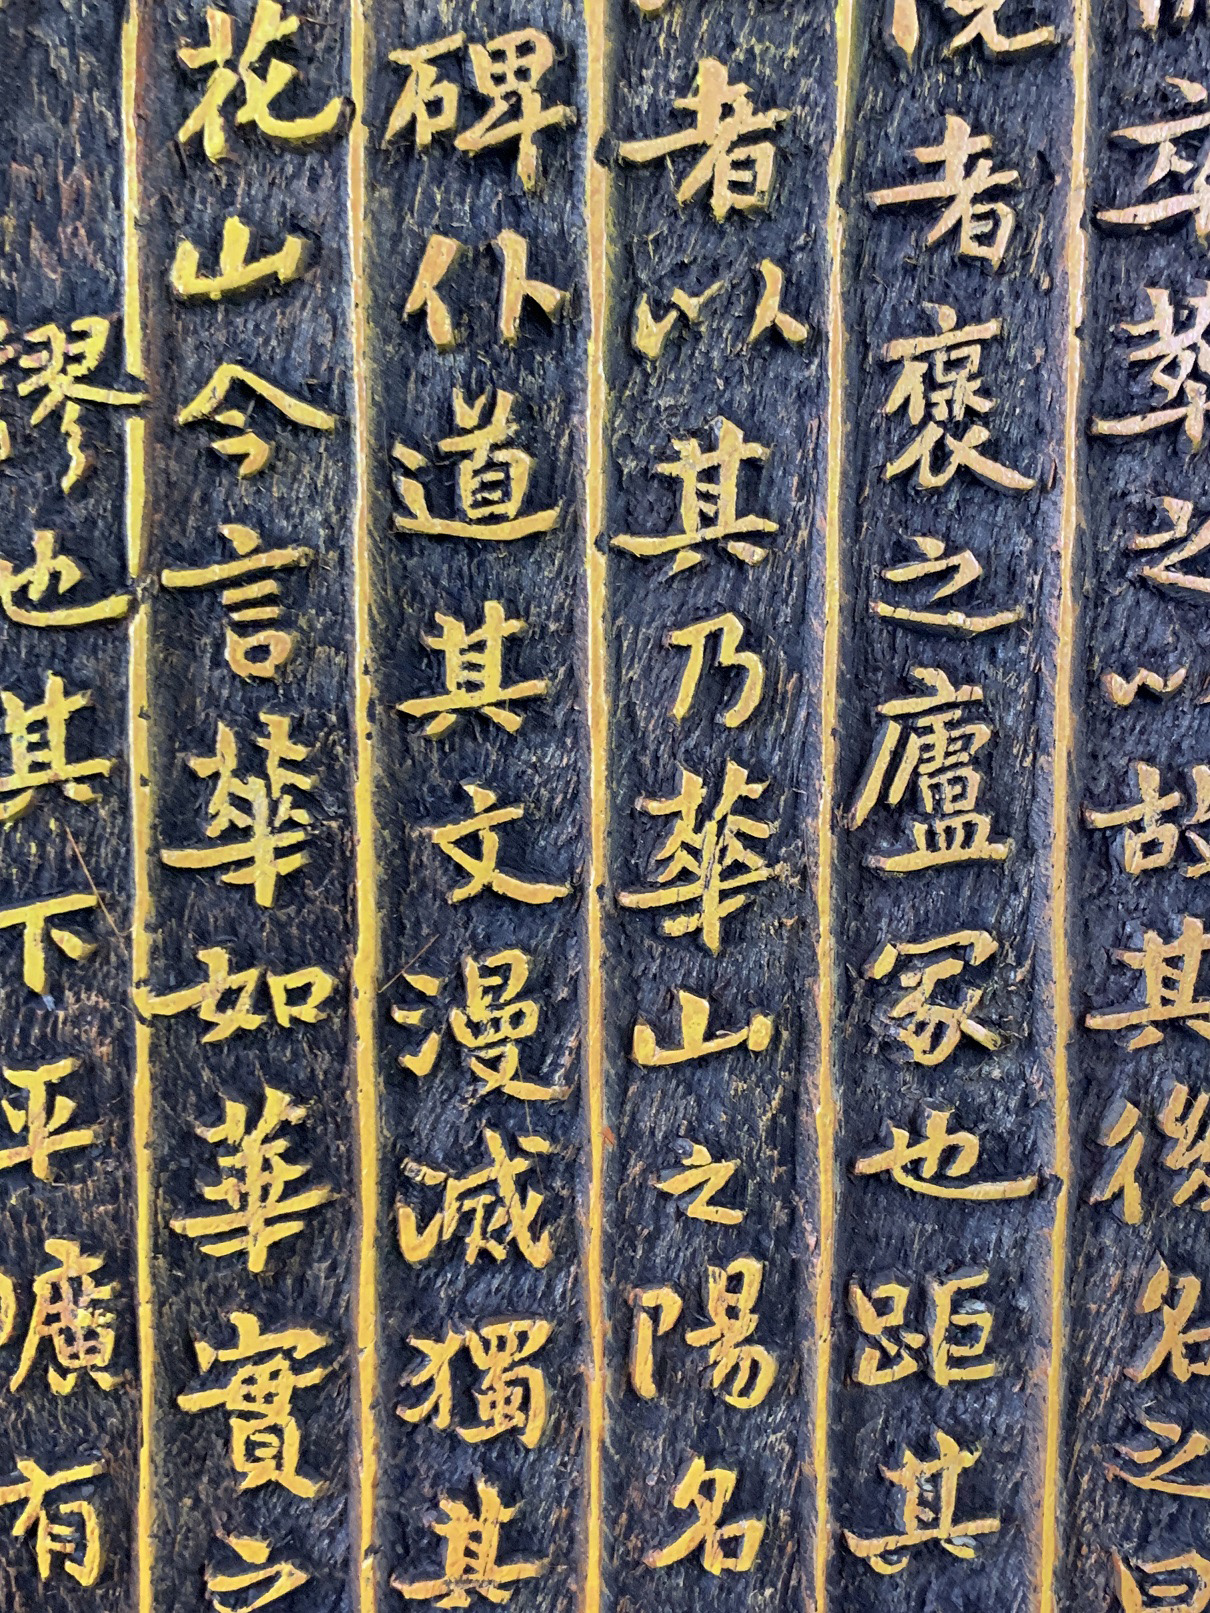 卒葬之以故其後名之曰
院者褒之廬冢也距其
者以其乃華山之陽名
碑仆道其文漫滅獨其
花山今言華如華實之
謬也其下平曠有